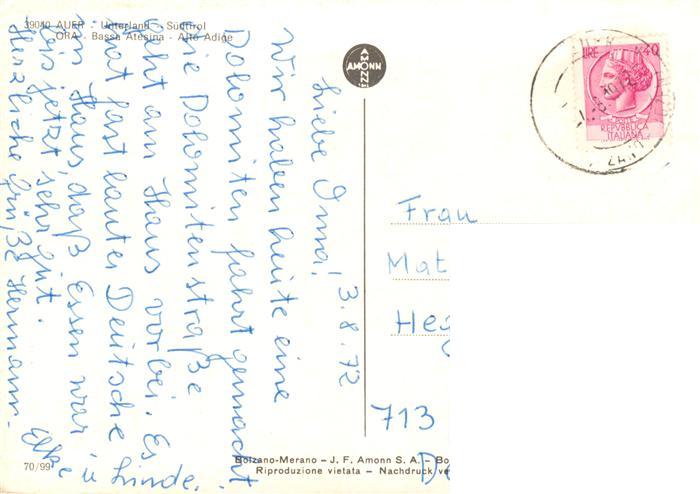 39040 AUER - Unterland - Südtirol
ORA - Bassa Atesina - Alto Adige
AMONN
3.8.72
Liebe Omma!
Wir haben heute eine
Dolomitenfahrt gemacht
Die Dolomitenstraße
geht am Haus vorbei. Es
hat fast lauter Deutsche
im Haus, daß Essen war
bis jetzt sehr gut.
Herzliche Grüße Hermann.
Elke u Linde.
LIRE 40
POSTE
REPVBBLICA
ITALIANA
Frau
Mat
Heg
713
D
70/99
Bolzano-Merano – J. F. Amonn S. A. – Bo
Riproduzione vietata – Nachdruck ve